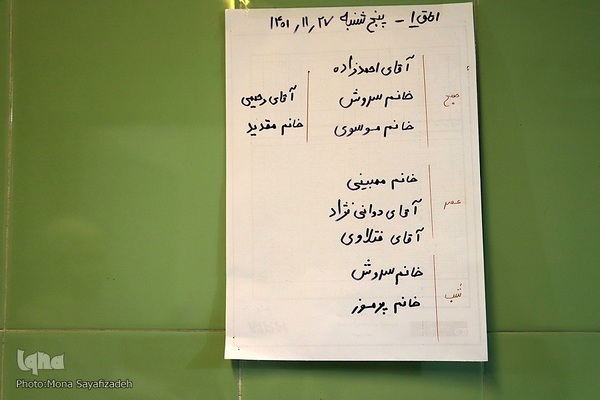 اتاق ۱ - پنج شنبه ۲۷, ۱۱, ۱۴۰۱
صبح
آقای احمدزاده
خانم سروش
خانم موسوی
آقای رحیمی
خانم مقدید
عصر
خانم مبینی
آقای دوانی نژاد
آقای فتلاوی
شب
خانم سروش
خانم پرموز
iqna
Photo:Mona Sayafizadeh